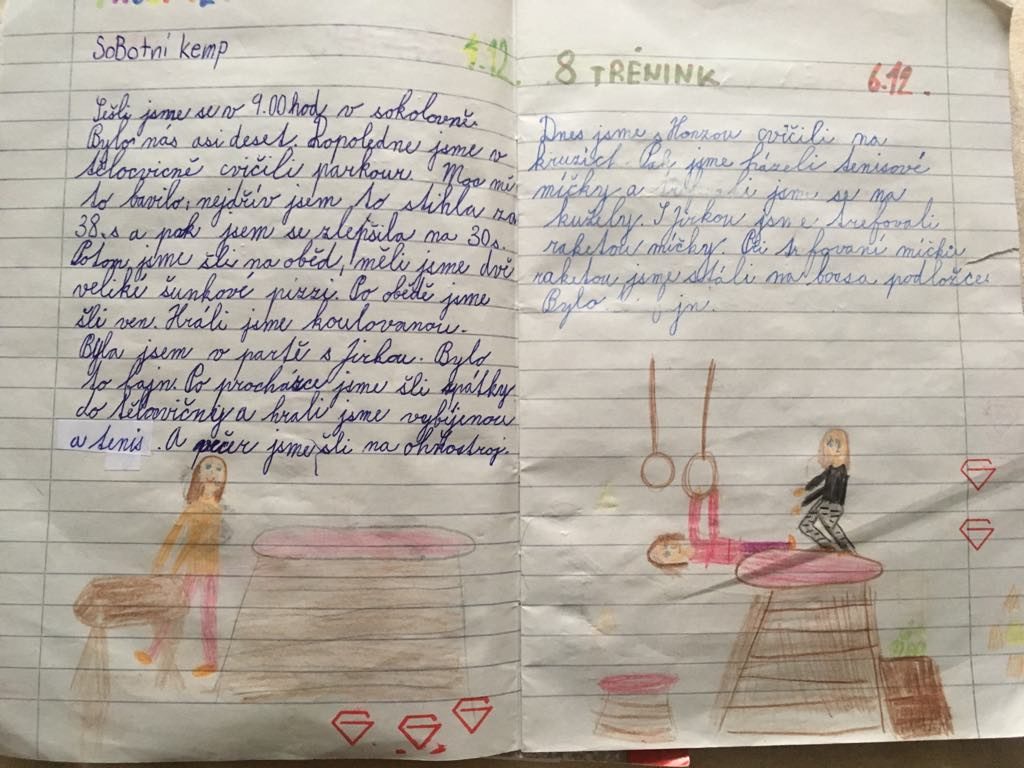 SoBotní kemp
4.12.
Sešli jsme se v 9.00 hod v sokolovně.
Bylo nás asi deset. Dopoledne jsme v
tělocvičně cvičili parkour. Moc mě
to bavilo, nejdřív jsem to stihla za
38.s a pak jsem se zlepšila na 30s.
Potom jsme šli na oběd, měli jsme dvě
veliké šunkové pizzi. Po obědě jsme
šli ven. Hráli jsme koulovanou.
Byla jsem v partě s Jirkou. Bylo
to fajn. Po procházce jsme šli zpátky
do tělocvičny a hráli jsme vybíjenou
a tenis. A večer jsme šli na ohňostroj.
8 TRÉNINK
6.12.
Dnes jsme s Honzou cvičili na
kruzích. Pak jsme házeli tenisové
míčky a jsme se na
kužely. S Jirkou jsme trefovali
raketou míčky. Při míčků
raketou jsme stáli na bosa podložce.
Bylo